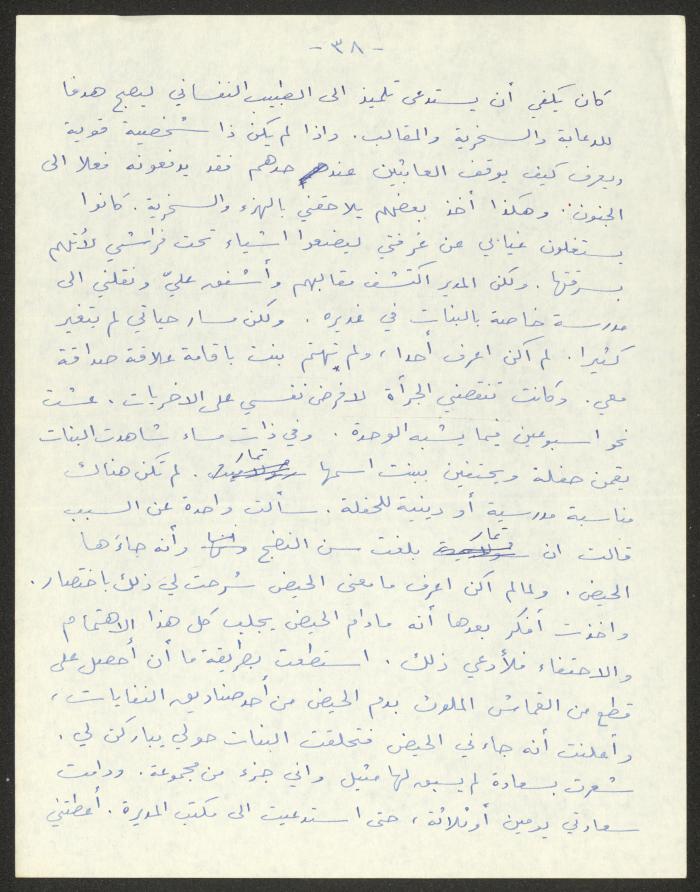 - ٣٨ -
كان يكفي أن يستدعى تلميذ الى الطبيب النفساني ليصبح هدفا
للدعابة والسخرية والمقالب. واذا لم يكن ذا شخصية قوية
ويعرف كيف يوقف العابثين عند حدهم فقد يدفعونه فعلا الى
الجنون. وهكذا أخذ بعضهم يلاحقني بالهزء والسخرية. كانوا
يستغلون غيابي عن غرفتي ليضعوا اشياء تحت فراشي لأتهم
بسرقتها. ولكن المدير اكتشف مقالبهم وأشفق عليّ ونقلني الى
مدرسة خاصة بالبنات في غديره. ولكن مسار حياتي لم يتغير
كثيرا. لم اكن اعرف أحدا، ولم تهتم بنت باقامة علاقة صداقة
معي. وكانت تنقصني الجرأة لافرض نفسي على الاخريات. عشت
نحو اسبوعين فيما يشبه الوحدة. وفي ذات مساء شاهدت البنات
يقمن حفلة ويحتفين ببنت اسمها تمار. لم تكن هناك
مناسبة مدرسية أو دينية للحفلة. سألت واحدة عن السبب
قالت ان تمار بلغت سن النضج وأنه جاءها
الحيض. ولما لم أكن اعرف ما معنى الحيض شرحت لي ذلك باختصار.
واخذت أفكر بعدها أنه مادام الحيض يجلب كل هذا الاهتمام
والاحتفاء فلأدعي ذلك. استطعت بطريقة ما أن أحصل على
قطع من القماش الملوث بدم الحيض من أحد صناديق النفايات،
وأعلنت أنه جاءني الحيض فتحلقت البنات حولي يباركن لي.
شعرت بسعادة لم يسبق لها مثيل واني جزء من مجموعة. ودامت
سعادتي يومين أو ثلاثة، حتى استدعيت الى مكتب المديرة. أعطتني